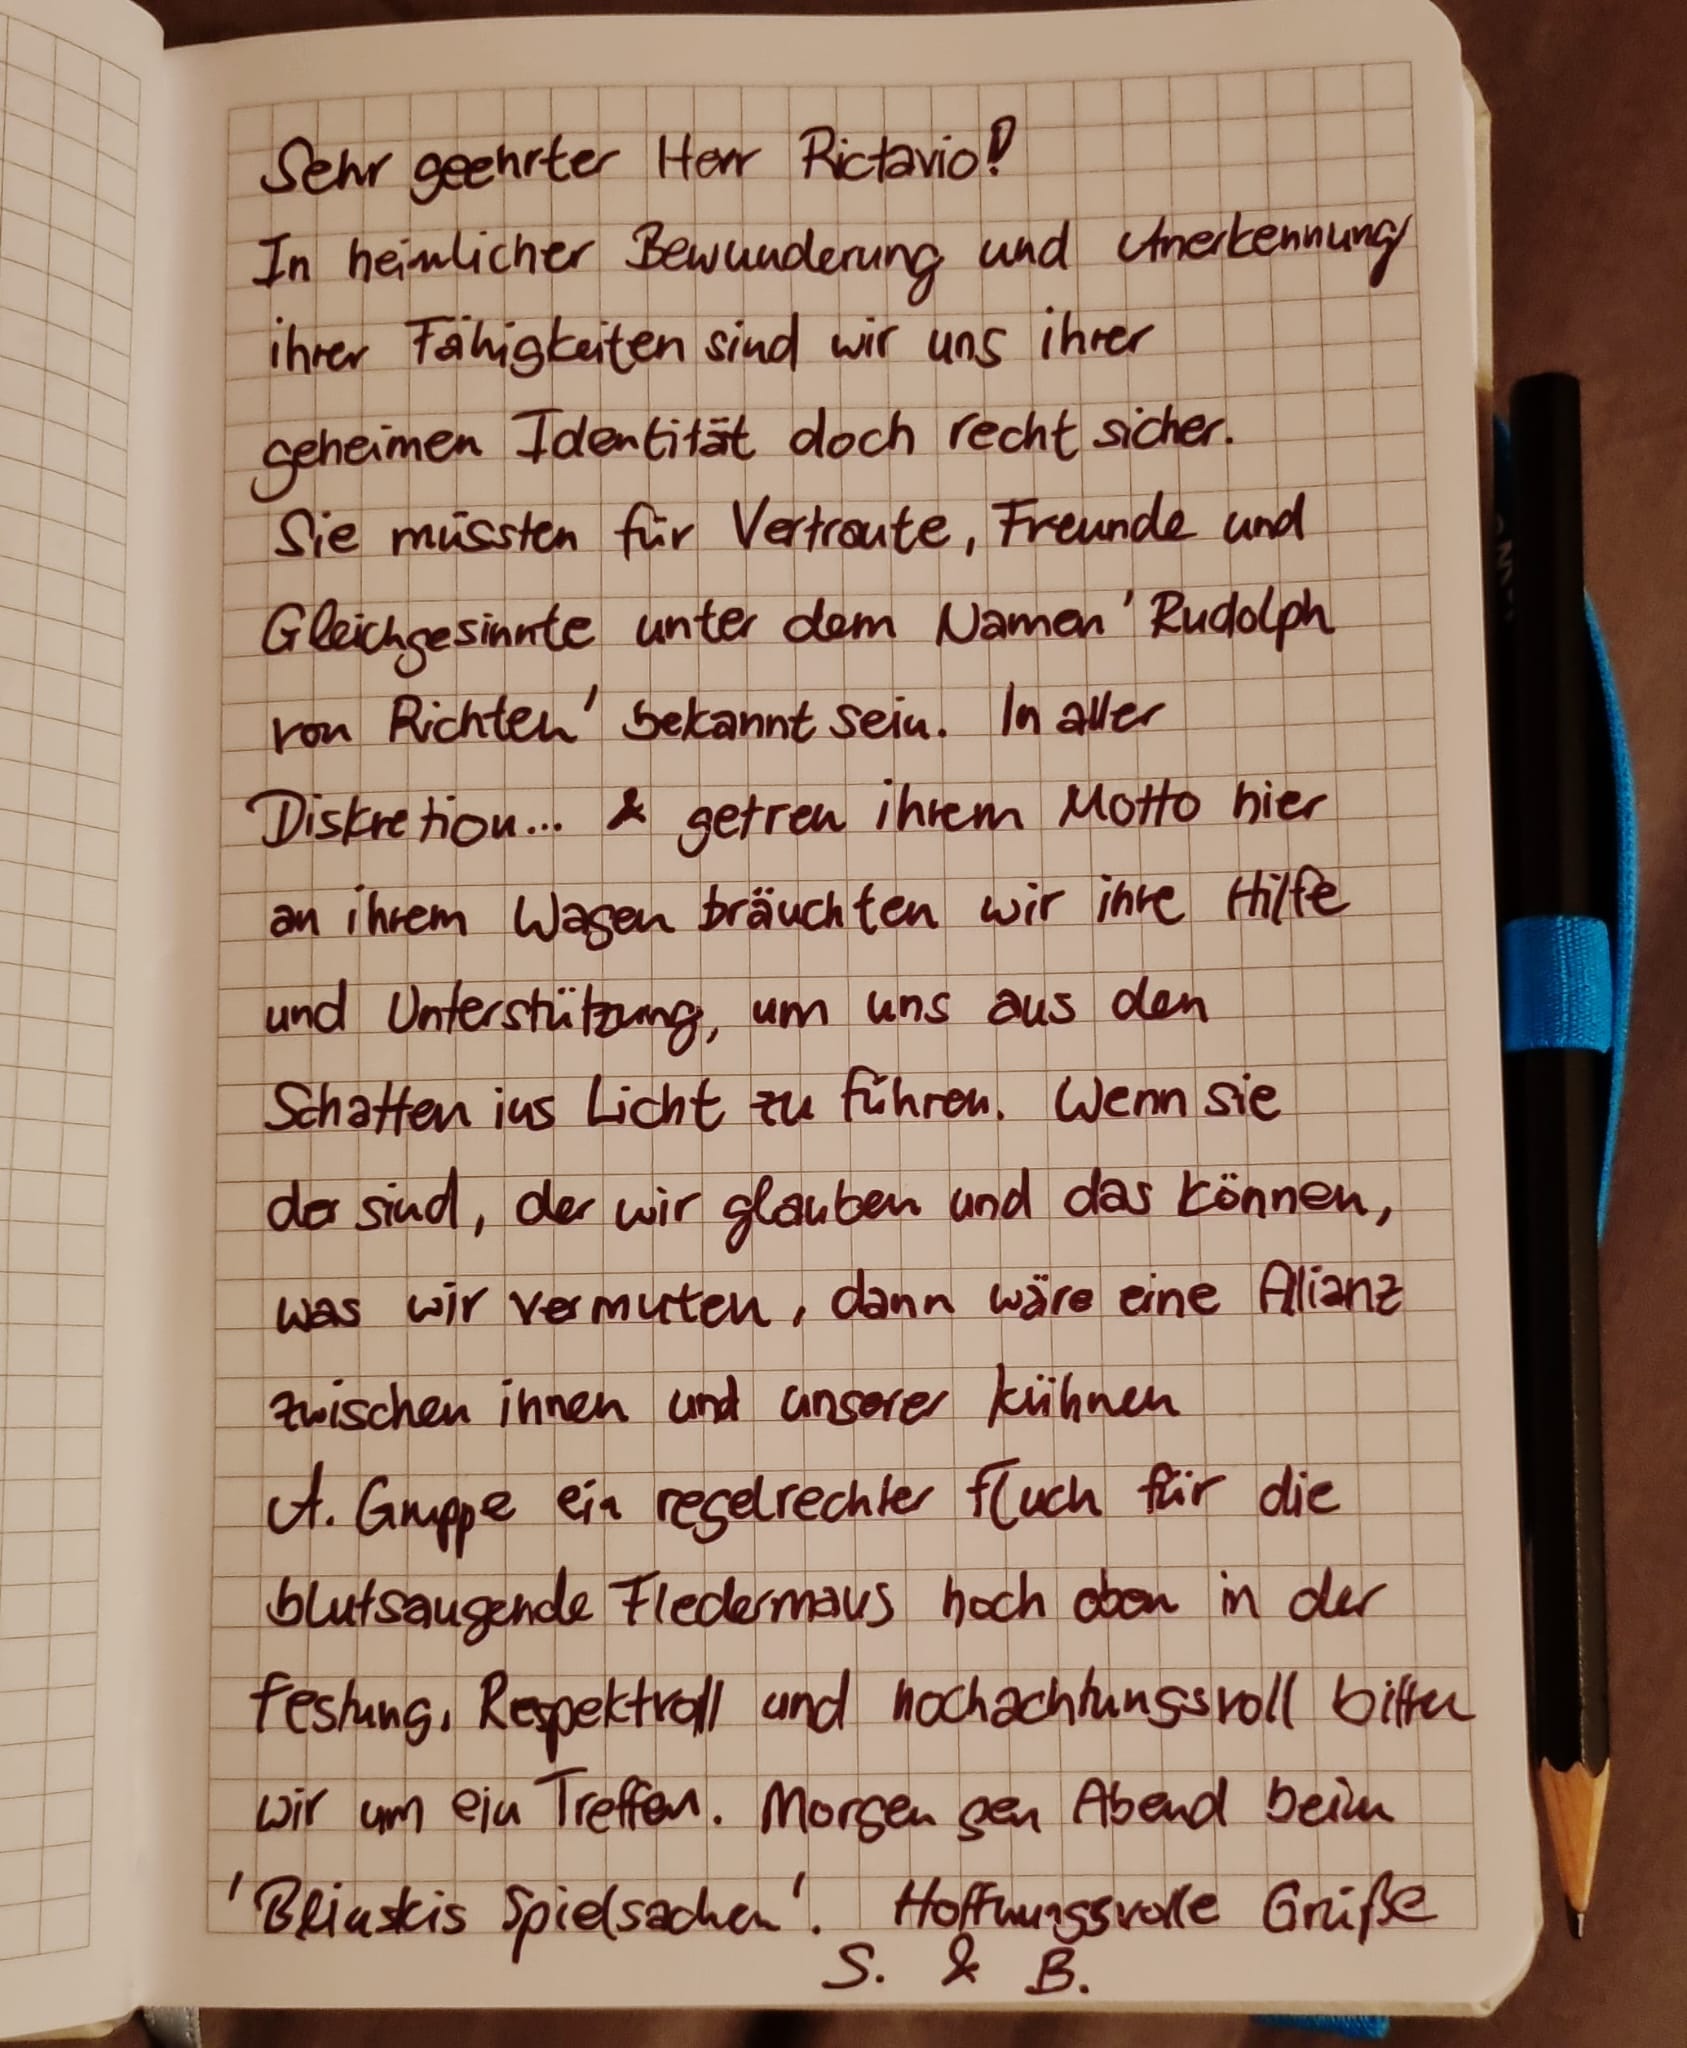 Sehr geehrter Herr Rictavio!
In heimlicher Bewunderung und Anerkennung
ihrer Fähigkeiten sind wir uns ihrer
geheimen Identität doch recht sicher.
Sie müssten für Vertraute, Freunde und
Gleichgesinnte unter dem Namen 'Rudolph
von Richten' bekannt sein. In aller
Diskretion... & getreu ihrem Motto hier
an ihrem Wagen bräuchten wir ihre Hilfe
und Unterstützung, um uns aus den
Schatten ins Licht zu führen. Wenn sie
der sind, der wir glauben und das können,
was wir vermuten, dann wäre eine Allianz
zwischen ihnen und unserer kühnen
A. Gruppe ein regelrechter Fluch für die
blutsaugende Fledermaus hoch oben in der
Festung. Respektvoll und hochachtungsvoll bitten
wir um ein Treffen. Morgen gen Abend beim
'Blinskis Spielsachen'. Hoffnungsvolle Grüße
S. & B.